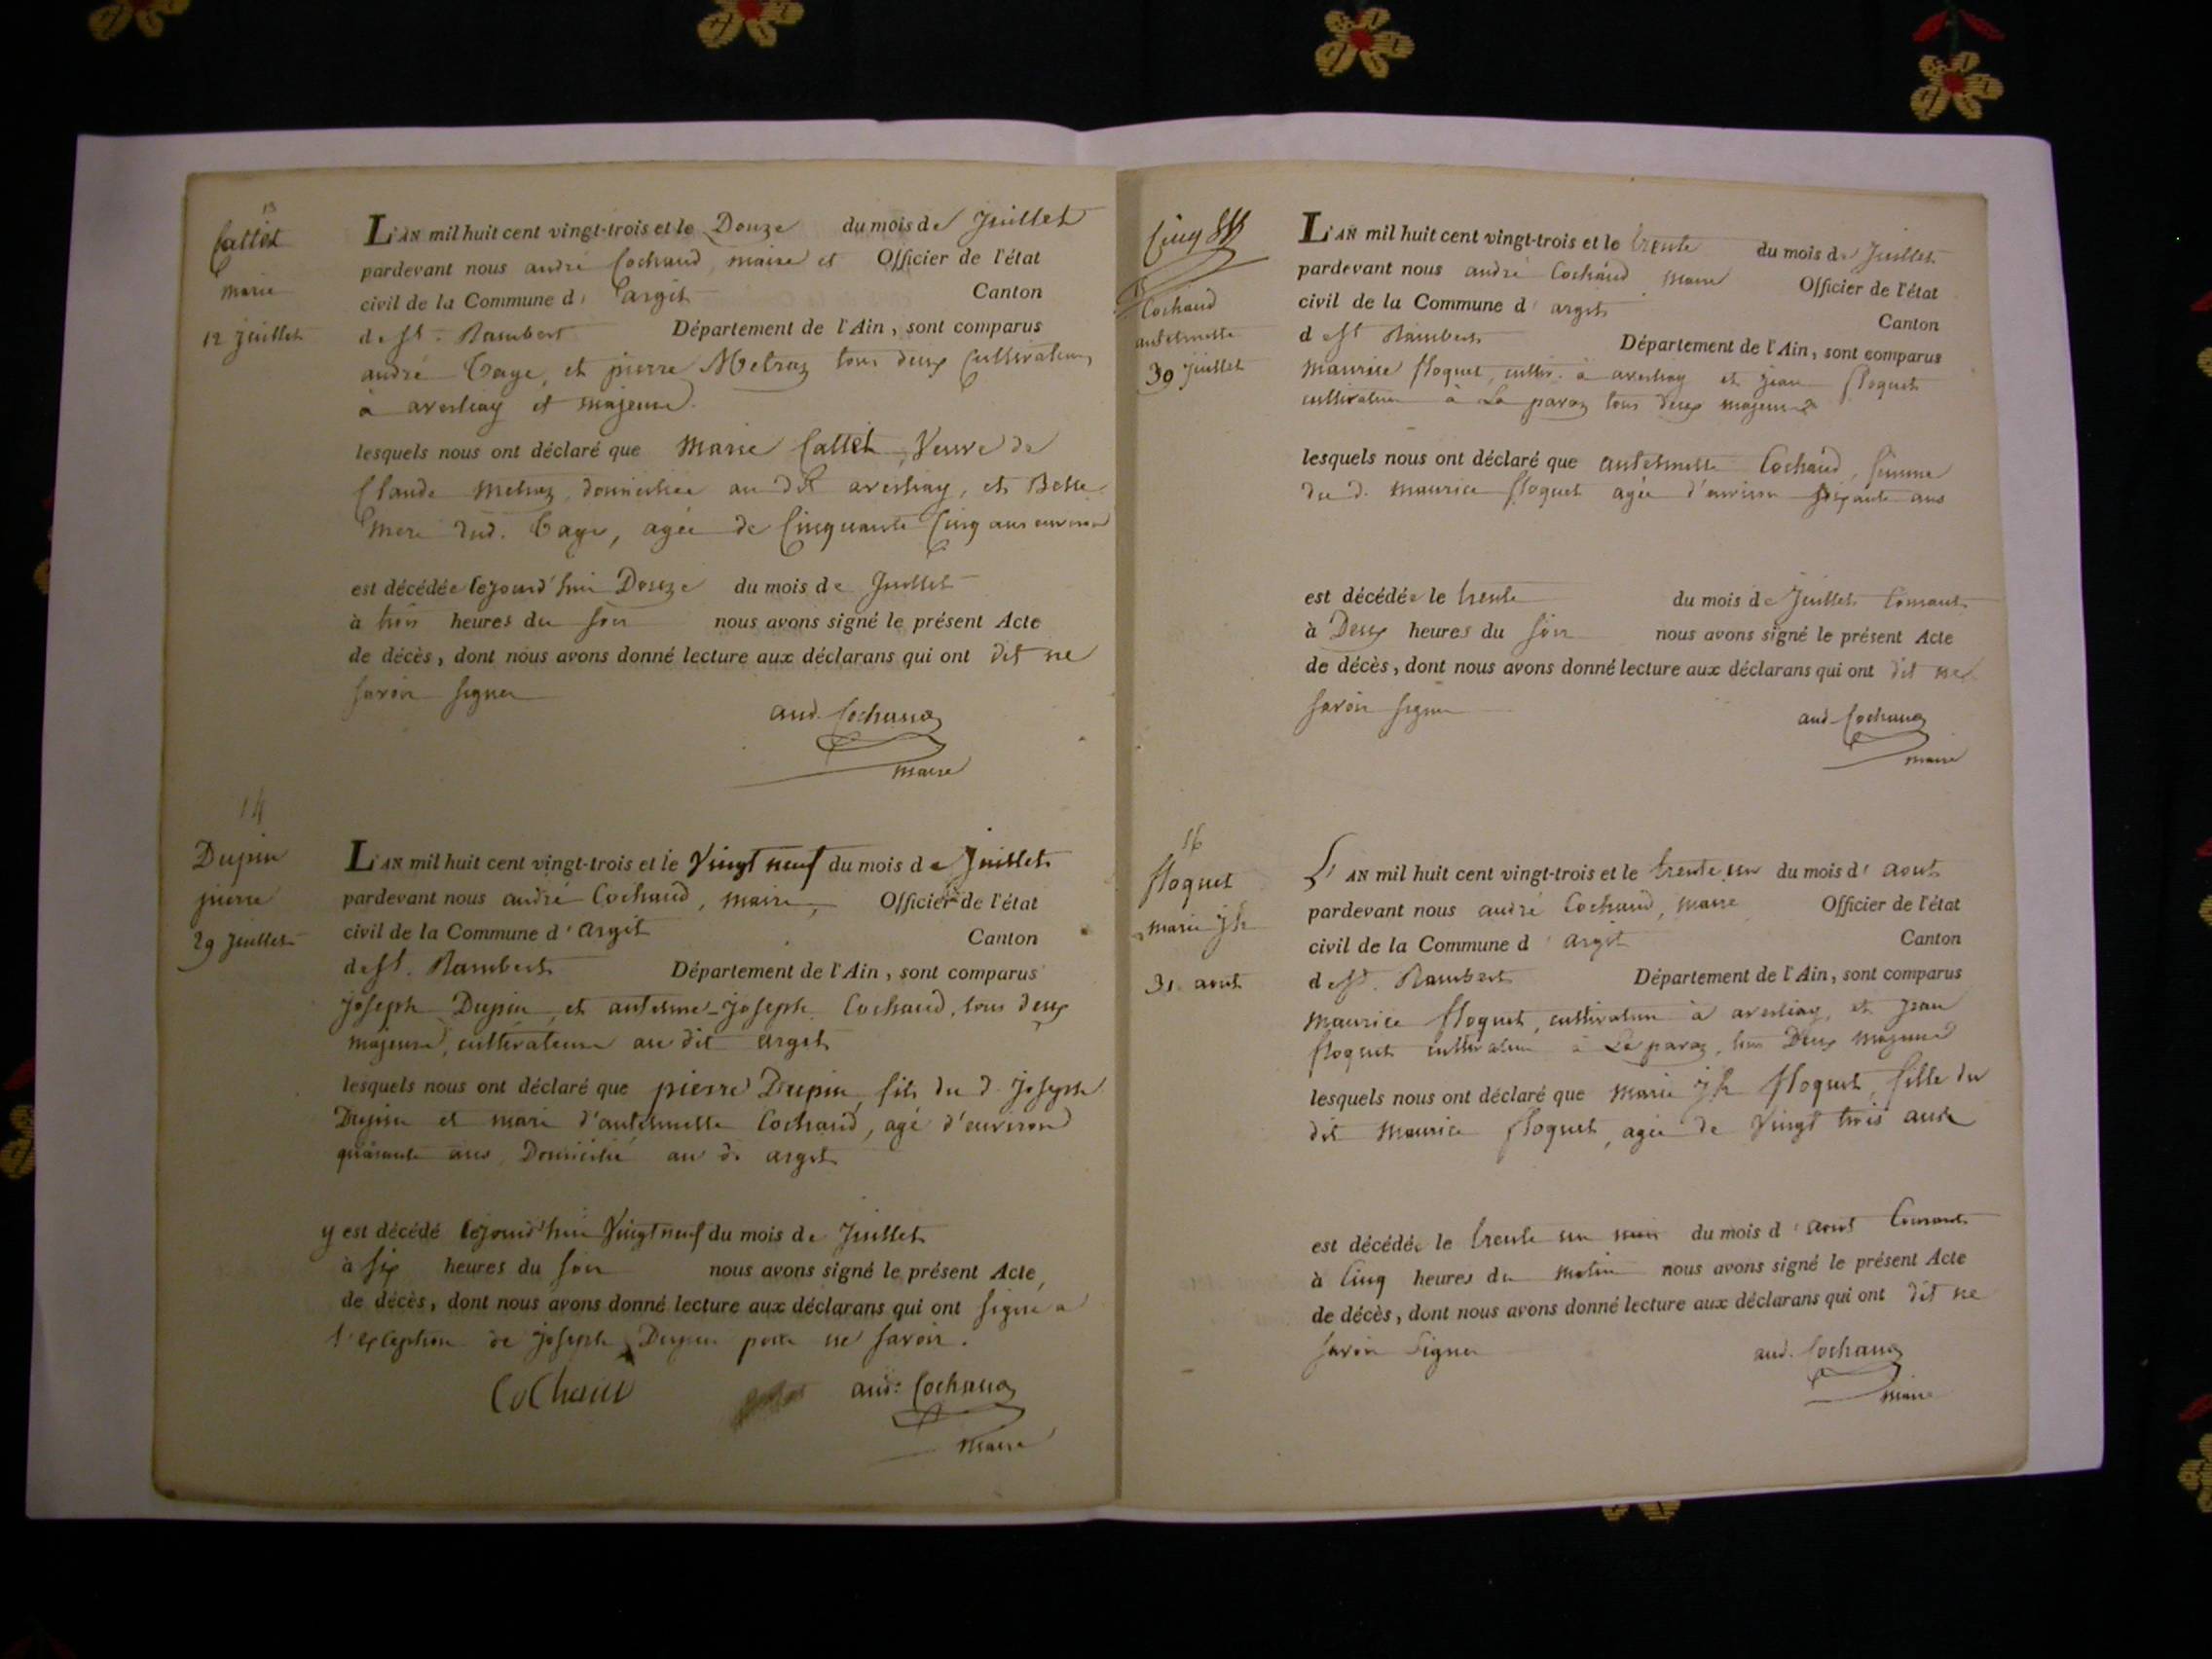 13
Cattet
marie
12 juillet
L'AN mil huit cent vingt-trois et le Douze du mois de Juillet
pardevant nous andré Cochaud, maire et Officier de l'état
civil de la Commune d' argit Canton
de St. Rambert Département de l'Ain, sont comparus
andré et pierre Metraz tous deux Cultivateurs
à et majeurs.
lesquels nous ont déclaré que Marie Cattet, Veuve de
Claude Metraz, domiciliée au dit et Belle
mere dud. agée de Cinquante Cinq ans environ
est décédée Cejourd'hui Douze du mois de Juillet
à trois heures du soir nous avons signé le présent Acte
de décès, dont nous avons donné lecture aux déclarans qui ont dit ne
savoir signer
and. Cochaud
maire
14
Dupin
pierre
29 Juillet
L'AN mil huit cent vingt-trois et le Vingt neuf du mois de Juillet
pardevant nous andré Cochaud, maire, Officier de l'état
civil de la Commune d'argit Canton
de St. Rambert Département de l'Ain, sont comparus
joseph Dupin et antelme-joseph Cochaud, tous deux
majeurs, cultivateurs au dit argit
lesquels nous ont déclaré que pierre Dupin, fils du d. joseph
Dupin et mari d'antelmette Cochaud, agé d'environ
quarante ans, Domicilié au d. argit
y est décédé Cejourd'hui Vingt neuf du mois de Juillet
à six heures du soir nous avons signé le présent Acte,
de décès, dont nous avons donné lecture aux déclarans qui ont signé a
l'exception de joseph Dupin pour ne savoir.
CoChaud and: Cochaud
maire
Cinq
15
Cochaud
antelmette
30 juillet
L'AN mil huit cent vingt-trois et le trente du mois de Juillet
pardevant nous andré Cochaud maire Officier de l'état
civil de la Commune d' argit Canton
de St Rambert Département de l'Ain, sont comparus
Maurice floquet, cultiv. à et jean floquet
cultivateur à La paraz tous deux majeurs
lesquels nous ont déclaré que antelmette Cochaud, femme
du d. maurice floquet agée d'environ soixante ans
est décédée le trente du mois de Juillet Courant
à Deux heures du soir nous avons signé le présent Acte
de décès, dont nous avons donné lecture aux déclarans qui ont dit ne
savoir signer
and. Cochaud
maire
16
floquet
marie jh
31 aout
L'AN mil huit cent vingt-trois et le trente un du mois d' aout
pardevant nous andré Cochaud, maire Officier de l'état
civil de la Commune d' argit Canton
de St. Rambert Département de l'Ain, sont comparus
maurice floquet, cultivateur à et jean
floquet cultivateur à La paraz, tous Deux majeurs
lesquels nous ont déclaré que marie jh floquet, fille du
dit maurice floquet, agée de Vingt trois ans
est décédée le trente un du mois d'aout Courant
à Cinq heures du matin nous avons signé le présent Acte
de décès, dont nous avons donné lecture aux déclarans qui ont dit ne
savoir signer
and. Cochaud
maire